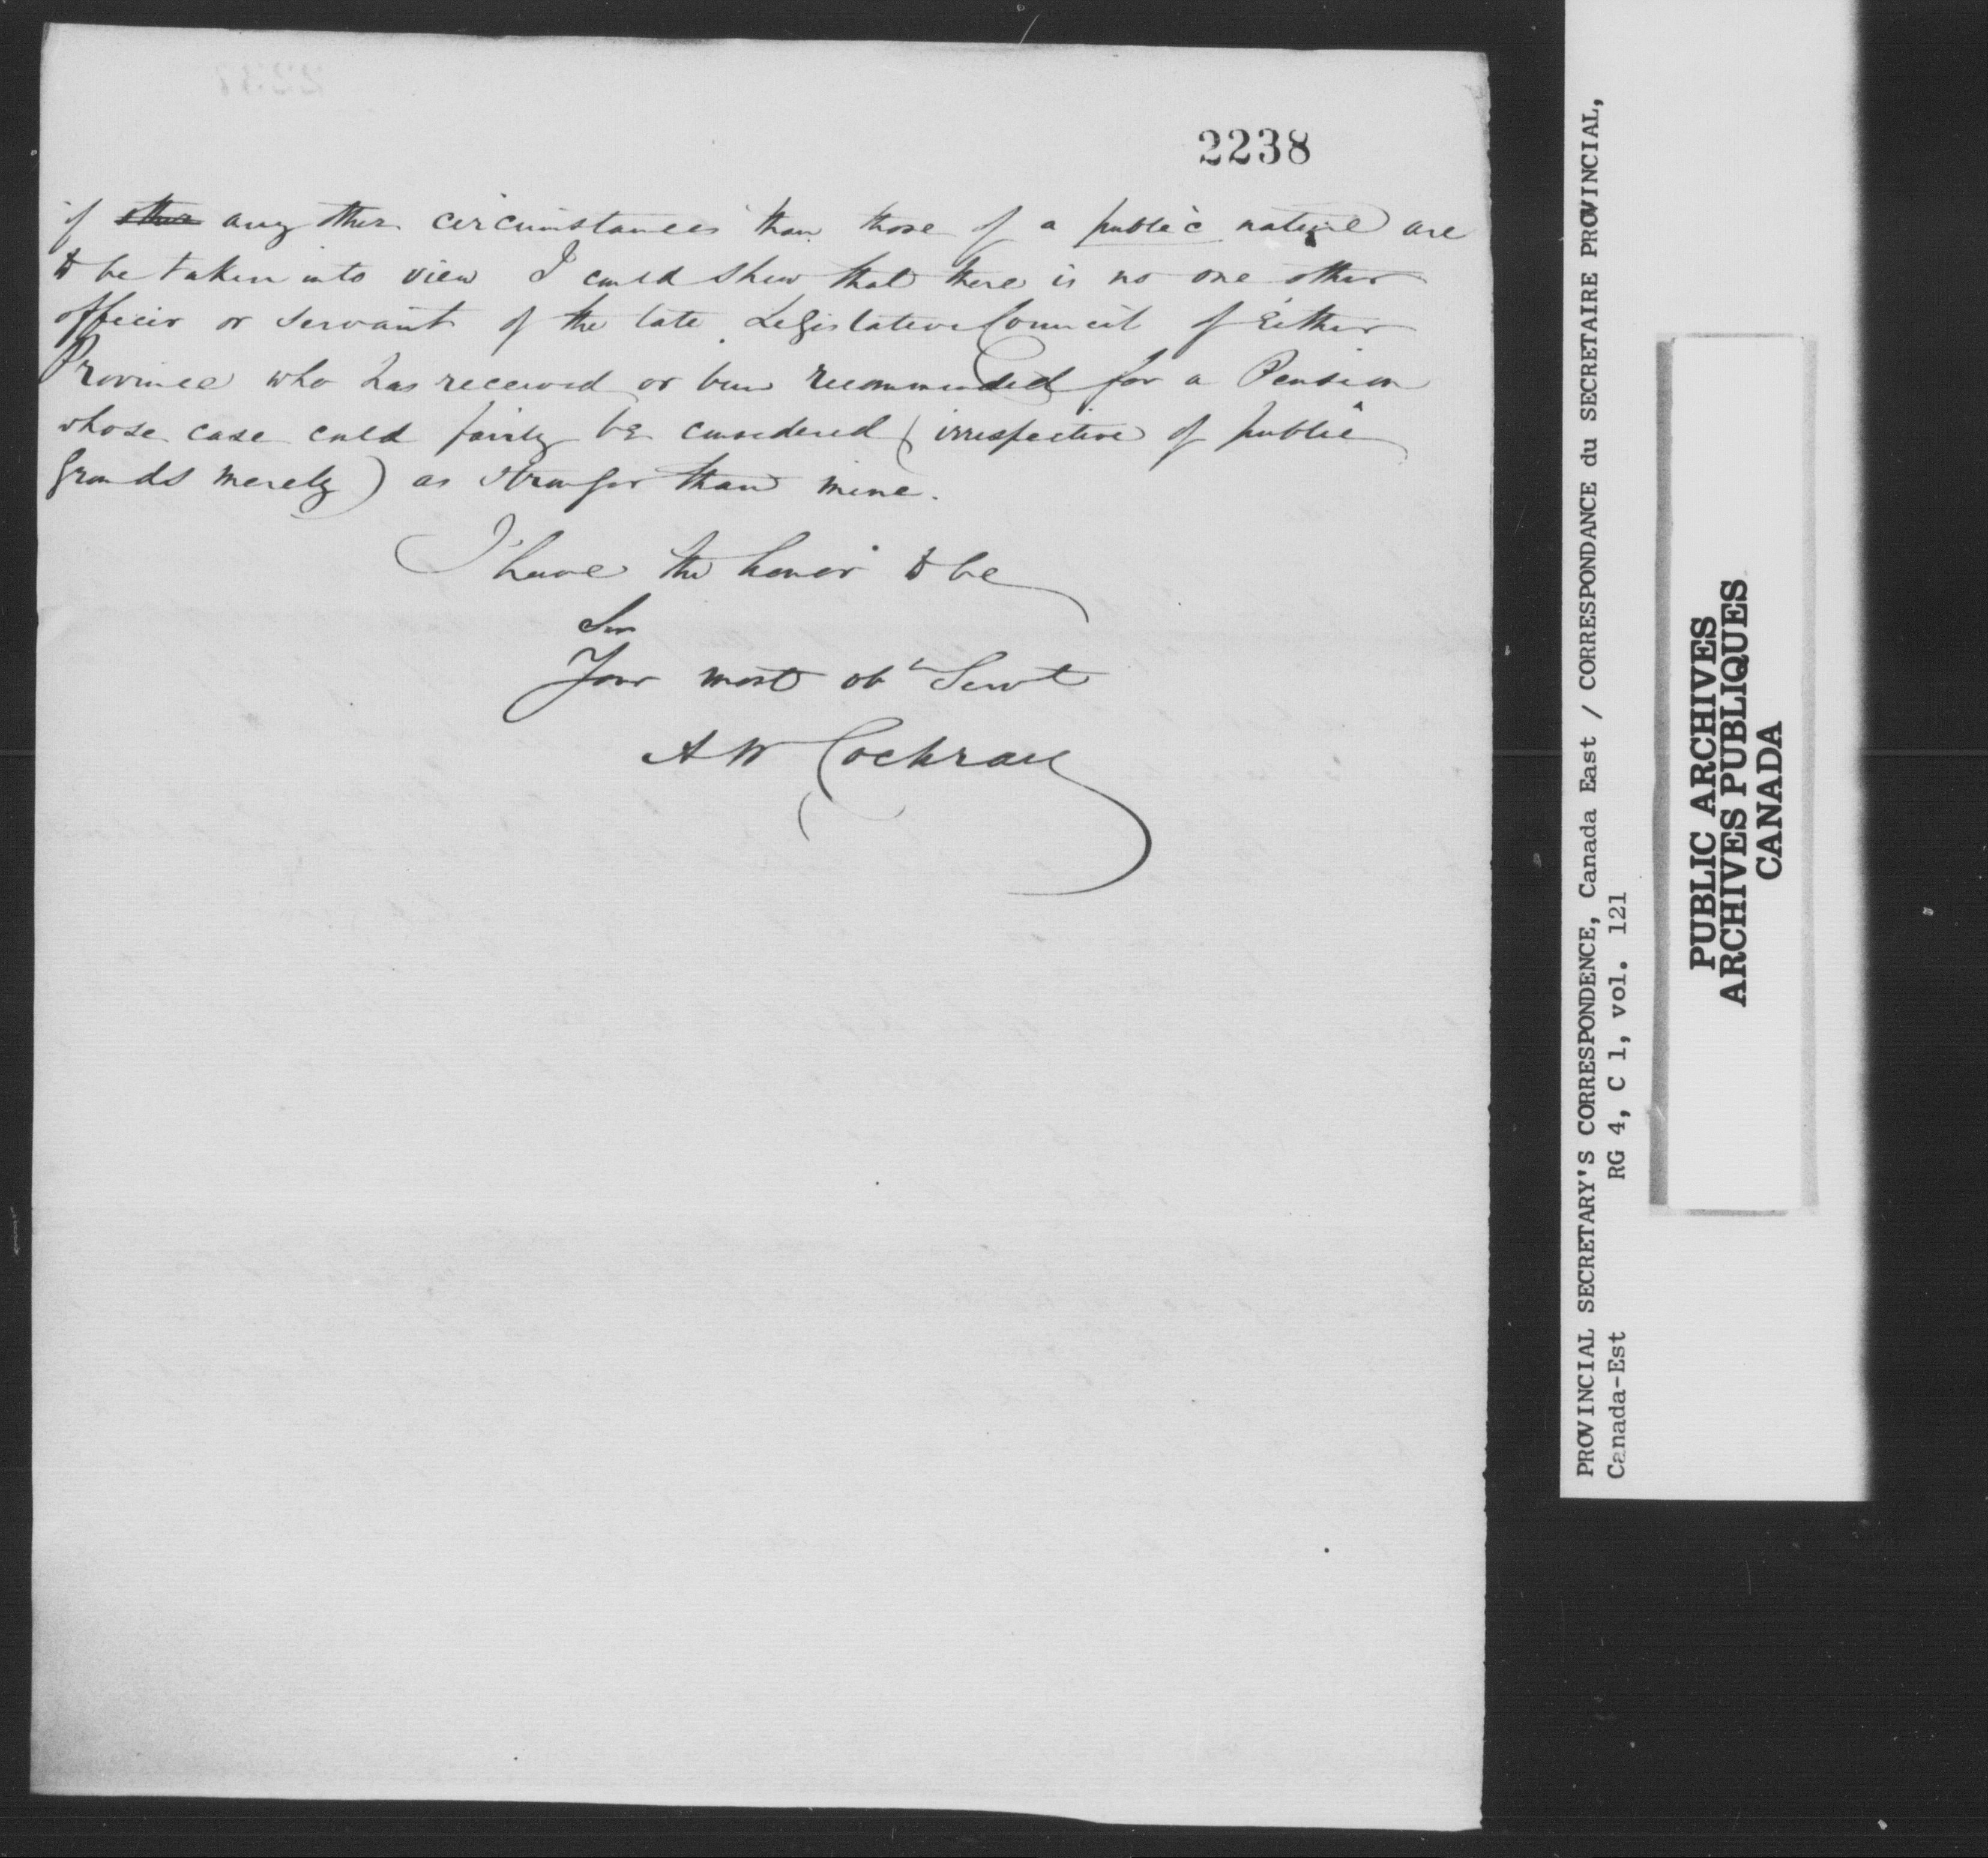 2238
if other any other circumstances than those of a public nature are
to be taken into view I could shew that there is no one other
officer or servant of the late Legislative Council of Either
Province who has received or been recommended for a Pension
whose case could fairly be considered (irrespective of public
grounds merely) as stronger than mine.
I have the honor to be
Sir
Your most obt Servt
A W Cochran
PROVINCIAL SECRETARY'S CORRESPONDENCE, Canada East / CORRESPONDANCE du SECRETAIRE PROVINCIAL,
Canada-Est RG 4, C 1, vol. 121
PUBLIC ARCHIVES
ARCHIVES PUBLIQUES
CANADA